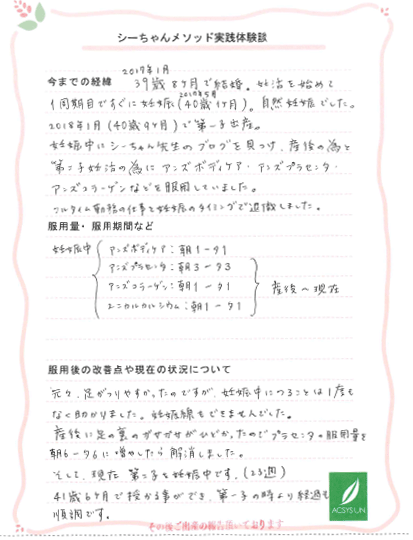 シーちゃんメソッド実践体験談
2017年1月
今までの経緯 39歳8ヶ月で結婚。妊活を始めて
2017年5月
1周期目ですぐに妊娠(40歳1ヶ月)。自然妊娠でした。
2018年1月(40歳9ヶ月)で第一子出産。
妊娠中にシーちゃん先生のブログを見つけ、産後の為と
第二子妊活の為にアンズボディケア・アンズプラセンタ・
アンズコラーゲンなどを服用していました。
フルタイム勤務の仕事も妊娠のタイミングで退職しました。
服用量・服用期間など
妊娠中 アンズボディケア:朝1-夕1
アンズプラセンタ:朝3-夕3
アンズコラーゲン:朝1-夕1 産後〜現在
ユニカルカルシウム:朝1-夕1
服用後の改善点や現在の状況について
元々、足がつりやすかったのですが、妊娠中につることは1度も
なく助かりました。妊娠線もできませんでした。
産後に足の裏のガサガサがひどかったのでプラセンタの服用量を
朝6-夕6に増やしたら解消しました。
そして、現在 第二子を妊娠中です。(23週)
41歳6ヶ月で授かる事ができ、第一子の時より経過も
順調です。
ACSYSLIN
その後ご出産の報告頂いております